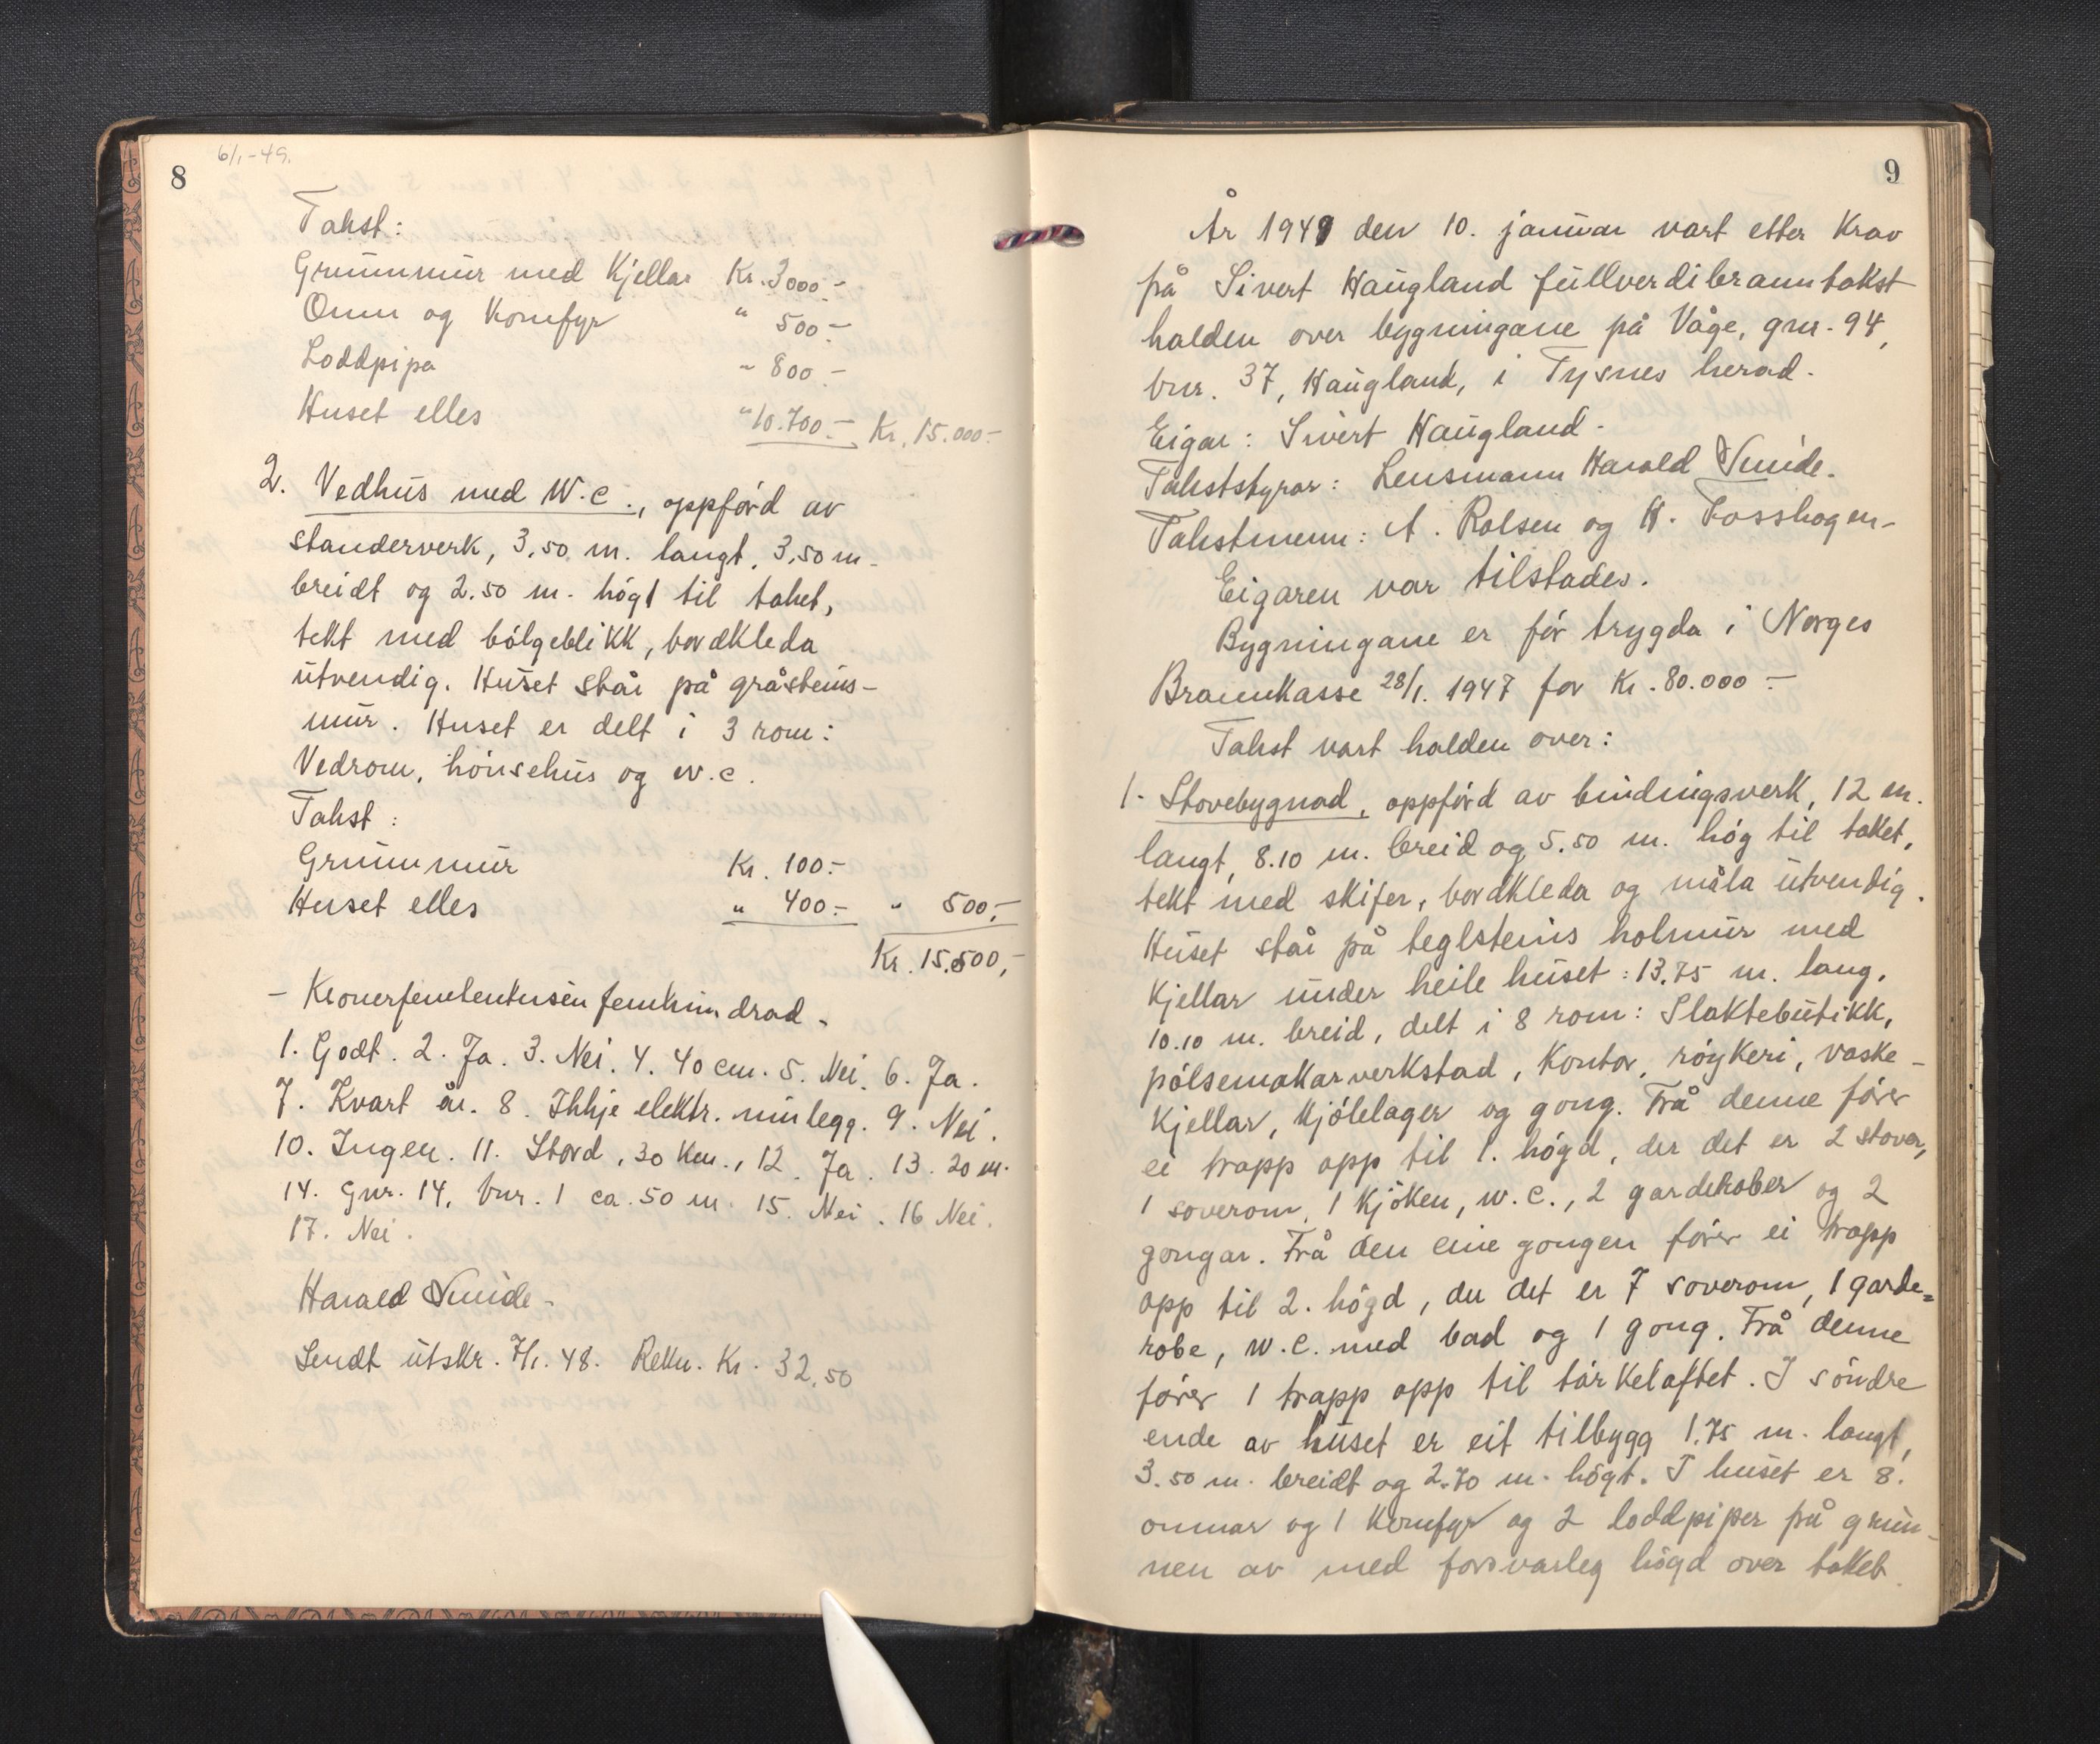 8
6/1-49.
Takst:
Grunnmur med Kjellar Kr. 3000.-
Omn og Komfyr " 500.-
Loddpipa " 800.-
Huset elles " 10.700.- Kr. 15.000.-
2. Vedhus med W.C., oppförd av
standerverk, 3.50 m. langt, 3.50 m.
breidt og 2.50 m. högt til taket,
tekt med bölgeblikk, bordkleda
utvendig. Huset står på gråsteins-
mur. Huset er delt i 3 rom:
Vedrom, hönsehus og w.c.
Takst:
Grunnmur Kr. 100.-
Huset elles " 400.- " 500,-
Kr. 15.500,-
- Kronerfemtentusen femhundrad -
1. Godt. 2. Ja. 3. Nei. 4. 40 cm. 5. Nei. 6. Ja.
7. Kvart år. 8. Ikkje elektr. innlegg. 9. Nei.
10. Ingen. 11. Stord, 30 km., 12. Ja. 13. 20 m.
14. Gnr. 14, bnr. 1 ca. 50 m. 15. Nei. 16 Nei.
17. Nei.
Harald Sunde-
Sendt utskr. 7/1. 48. Rekn. Kr. 32.50
9
År 1949 den 10. januar vart etter Krav
på Sivert Haugland fullverdibranntakst
halden over bygningane på Våge, gnr. 94,
bnr. 37, Haugland, i Tysnes herad.
Eigar: Sivert Haugland.
Takststyrar: Lensmann Harald Sunde.
Takstmenn: A. Rolsen og H. Fosshagen-
Eigaren var tilstades.
Bygningane er för trygda i Norges
Brannkasse 28/1. 1947 for Kr. 80.000.-
Takst vart halden over:
1. Stovebygnad, oppförd av bindingsverk, 12 m.
langt, 8.10 m. breid og 5.50 m. hög til taket,
tekt med skifer, bordkleda og måla utvendig.
Huset står på teglsteins holmur med
Kjellar under heile huset: 13.75 m. lang,
10.10 m. breid, delt i 8 rom: Slaktebutikk,
pölsemakarverkstad, Kontor, röykeri, vaske-
Kjellar, Kjölelager og gong. Frå denne förer
ei trapp opp til 1. högd, der det er 2 stover,
1 soverom, 1 Kjöken, w.c., 2 garderober og 2
gongar. Frå den eine gongen förer ei trapp
opp til 2. högd, der det er 7 soverom, 1 garde=
robe, w.c. med bad og 1 gong. Frå denne
förer 1 trapp opp til törkeloftet. I söndre
ende av huset er eit tilbygg 1.75 m. langt,
3.50 m. breidt og 2.70 m. högt. I huset er 8.
omnar og 1 Komfyr og 2 loddpiper på grun-
nen av med forsvarleg högd over taket